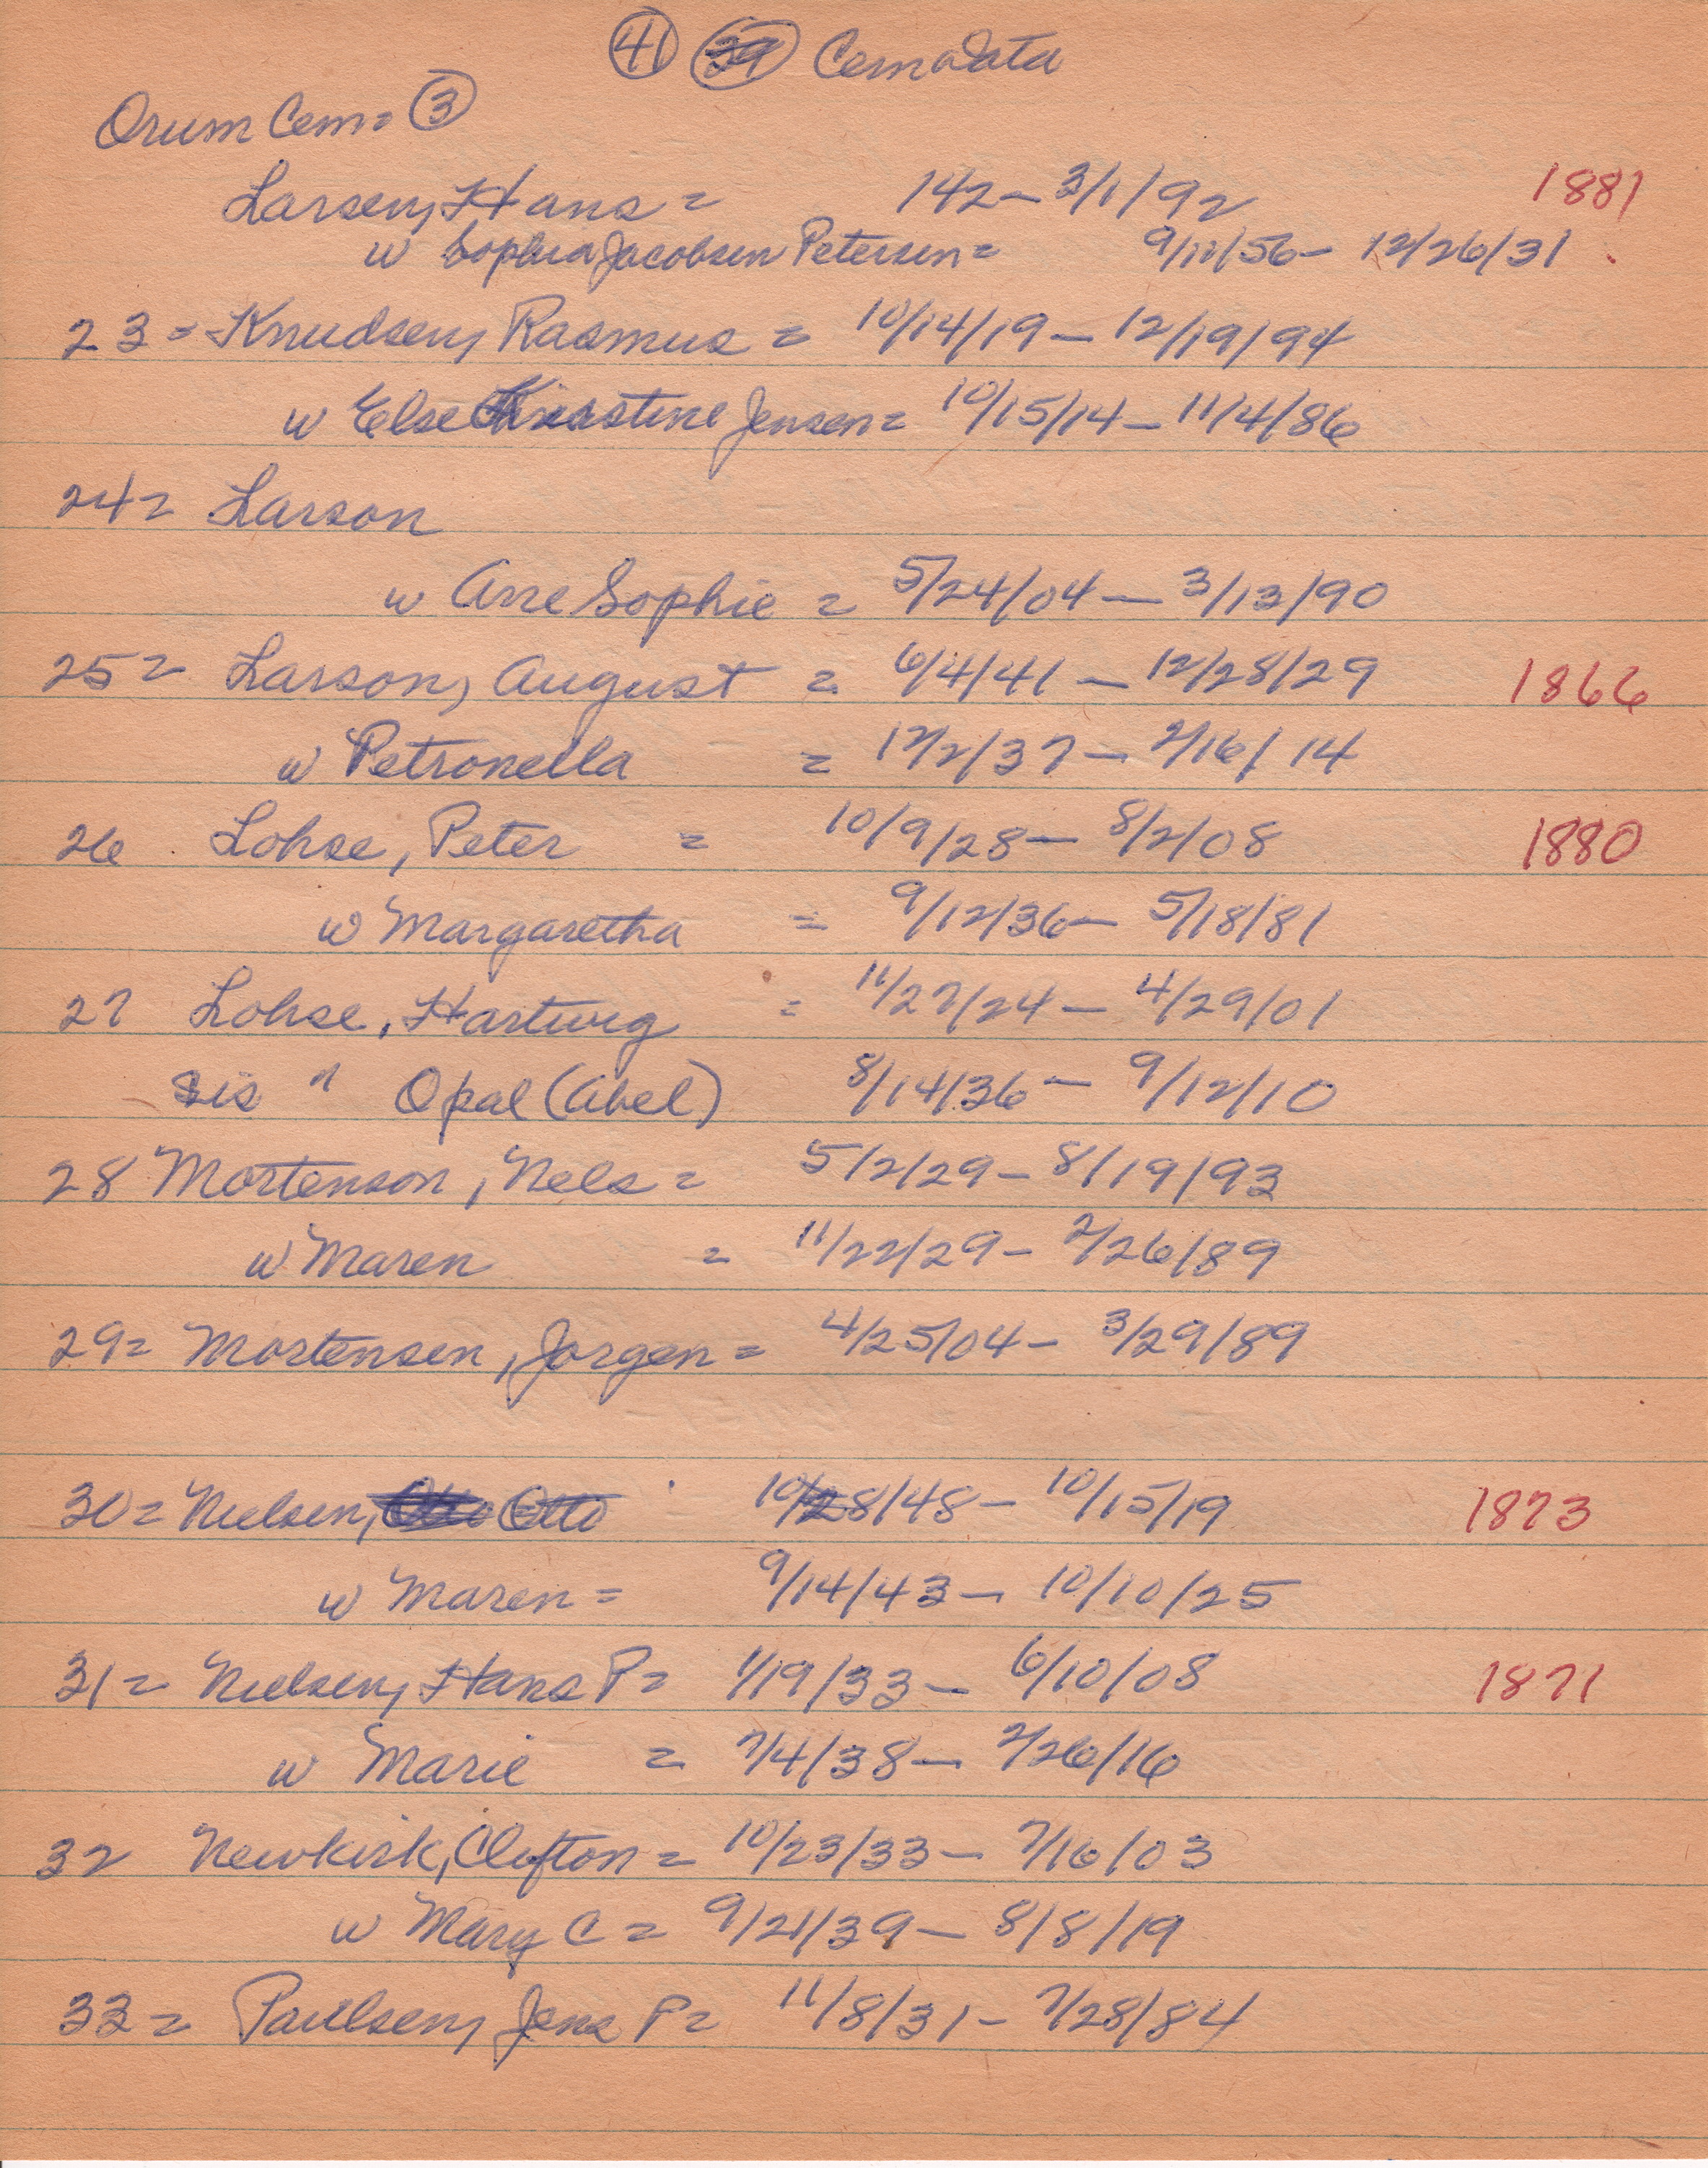 41 39 Cem Data
Orum Cem = 3
Larsen, Hans = 142 - 3/1/92 1881
w Sophia Jacobsen Petersen = 9/11/56 - 12/26/31
23 = Knudsen, Rasmus = 10/14/19 - 12/19/94
w Else Kirstine Jensen = 10/15/14 - 11/4/86
24 = Larson
w Ane Sophie = 5/24/04 - 3/13/90
25 = Larson, August = 6/4/41 - 12/28/29 1866
w Petronella = 12/2/37 - 2/16/14
26 Lohse, Peter = 10/9/28 - 8/2/08 1880
w Margaretha = 9/12/36 - 5/18/81
27 Lohse, Hartwig = 11/27/24 - 4/29/01
sis " Opal (Abel) 8/14/36 - 9/12/10
28 Mortenson, Nels = 5/2/29 - 8/19/93
w Maren = 11/22/29 - 2/26/89
29 = Mortensen, Jorgen = 4/25/04 - 3/29/89
30 = Nielsen, Otto 10/28/48 - 10/15/19 1873
w Maren = 9/14/43 - 10/10/25
31 = Nielsen, Hans P = 1/19/33 - 6/10/08 1871
w Marie = 7/4/38 - 2/26/16
32 Newkirk, Clifton = 10/23/33 - 7/16/03
w Mary C = 9/21/39 - 8/8/19
33 = Paulsen, Jens P = 11/8/31 - 7/28/84